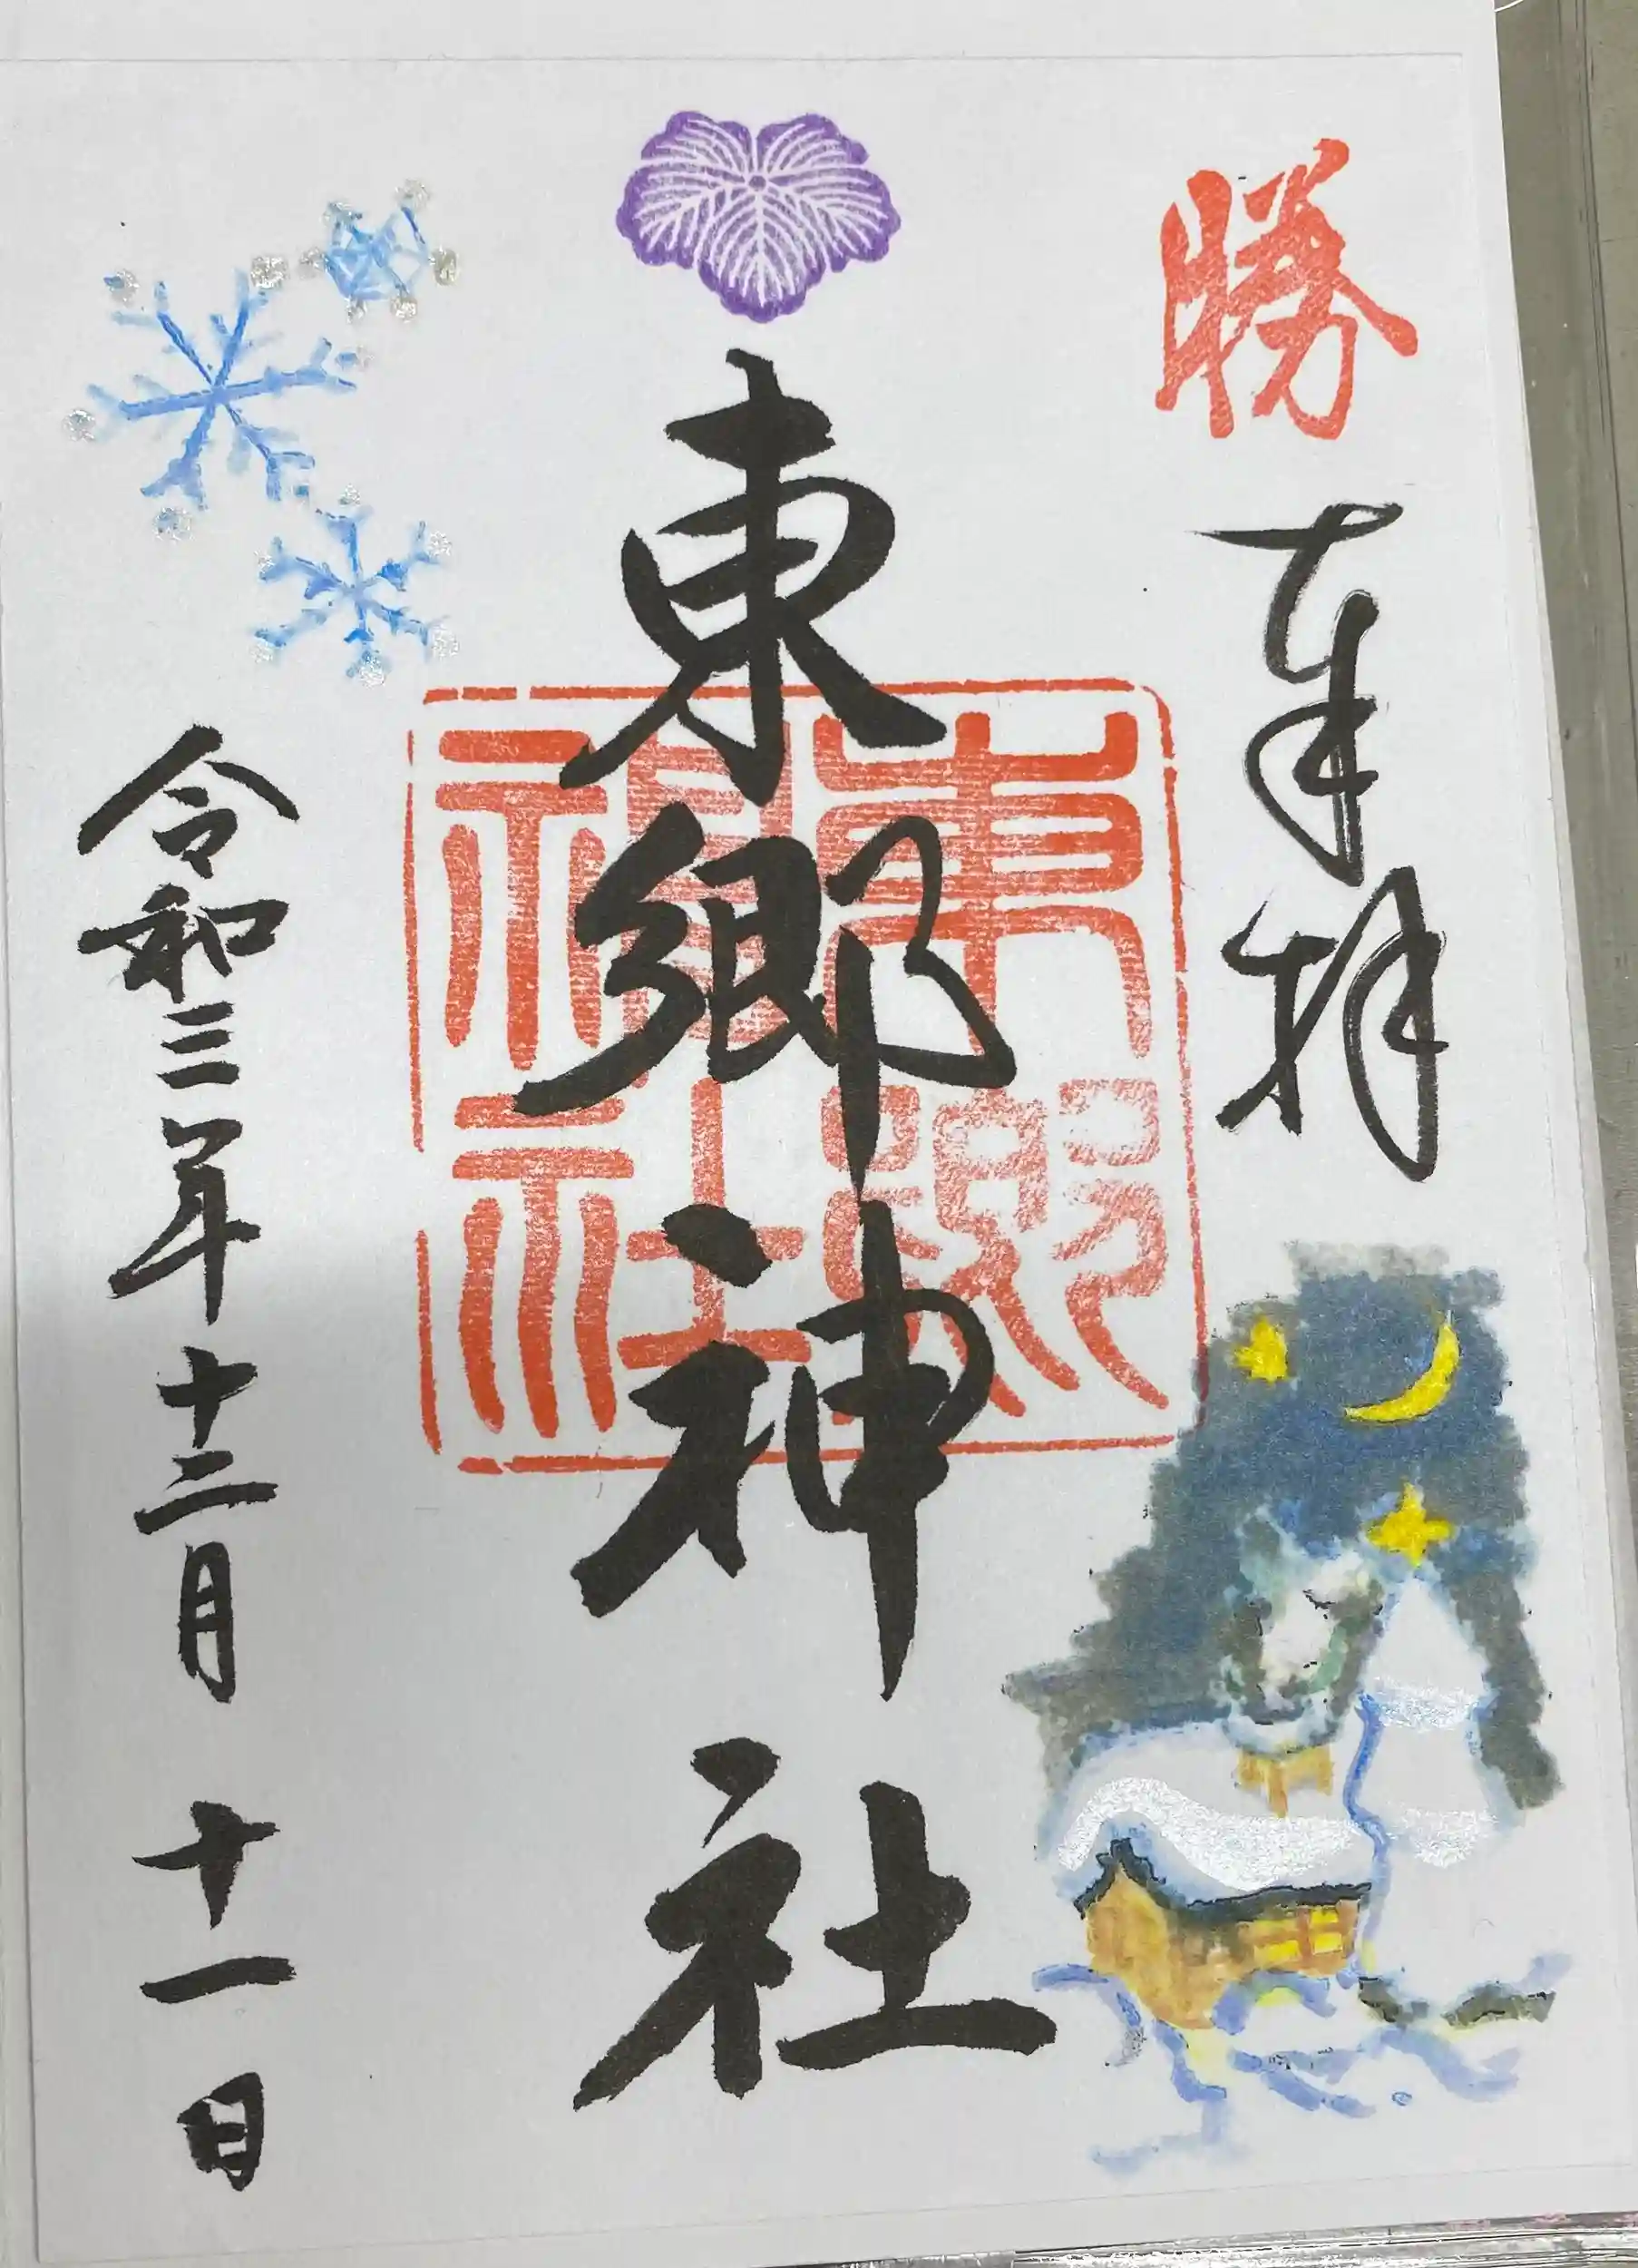 勝
奉拝
東郷神社
東郷神社
令和三年十二月十一日